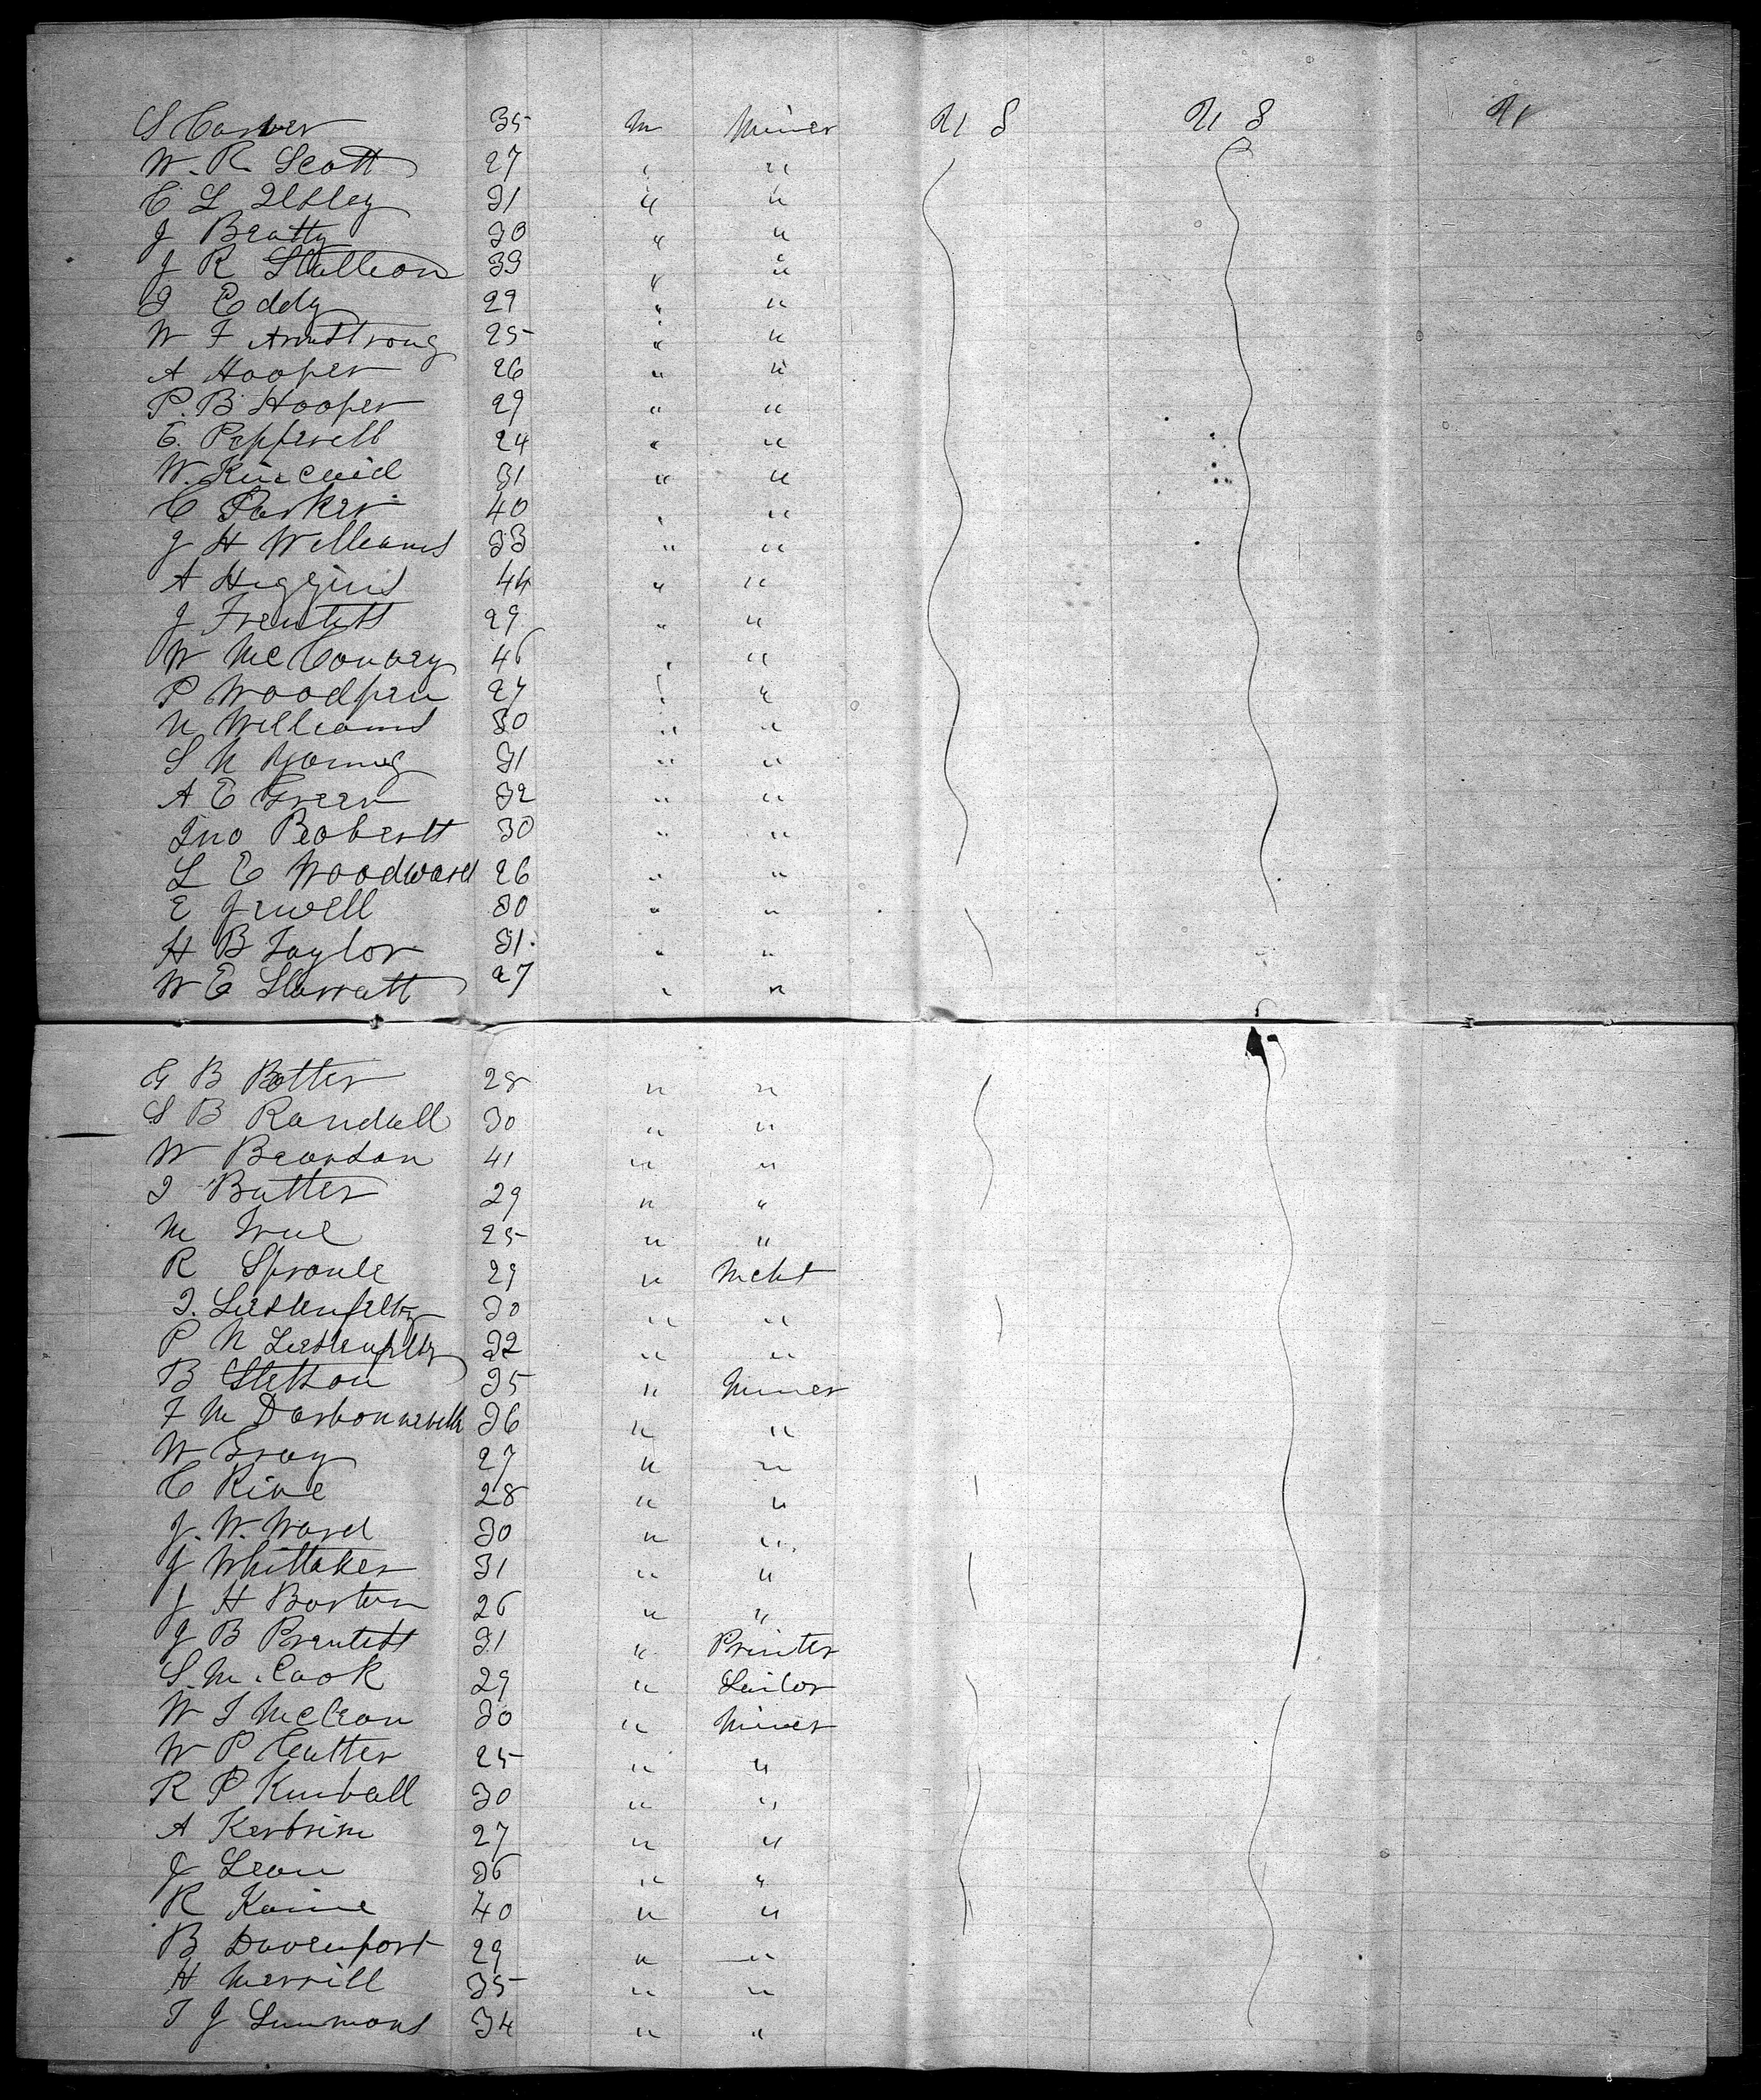 S Carver 35 M Miner U S U S N
W. R. Scott 27 " "
C L Ilsley 31 " "
J Beatty 30 " "
J R Stallion 39 " "
I Eddy 29 " "
W F Armstrong 25 " "
A Hooper 26 " "
P. B Hooper 29 " "
E. Pepperell 24 " "
W. Kincaid 31 " "
C Parker 40 " "
J H Williams 33 " "
A Higgins 44 " "
J Frentiss 29 " "
W McConvey 46 " "
P Woodfren 27 " "
N Williams 30 " "
S N Young 31 " "
A E Green 32 " "
Jno Roberts 30 " "
L E Woodward 26 " "
E Jewell 30 " "
H B Taylor 31 " "
W E Starratt 27 " "
G B Potter 28 " "
S B Randall 30 " "
W Bearsdon 41 " "
I Butter 29 " "
M True 25 " "
R Sproule 29 " Mcht
I. 30 " "
P N 32 " "
B Stetson 35 " Miner
F M 36 " "
W Gray 27 " "
C Rine 28 " "
J. W. Ward 30 " "
J Whittaker 31 " "
J H Barton 26 " "
J B Prentiss 31 " Printer
S. M. Cook 29 " Sailor
W I McCron 30 " Miner
W P Cutter 25 " "
R P Kimball 30 " "
A 27 " "
J Leon 36 " "
R Kaine 40 " "
B Davenport 29 " "
H Merrill 35 " "
T J Simmons 34 " "